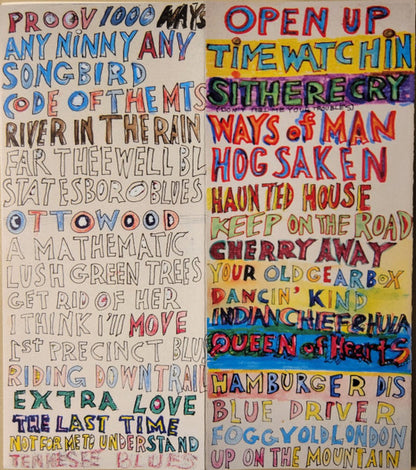 PROOV 1000 WAYS
ANY NINNY ANY
SONGBIRD
CODE OF THE MTS
RIVER IN THE RAIN
FAR THEE WELL BL
STATESBORO BLUES
OTTOWOOD
A MATHEMATIC
LUSH GREEN TREES
GET RID OF HER
I THINK I'll MOVE
1st PRECINCT BLU
RIDING DOWN TRAIL
EXTRA LOVE
THE LAST TIME
NOT FOR ME TO UNDERSTAND
TENNESEE BLUES
OPEN UP
TIME WATCHIN
SIT HERE CRY
(DON'T TELL ME YOUR TROUBLES)
WAYS of MAN
HOG SAKEN
HAUNTED HOUSE
KEEP ON THE ROAD
CHERRY AWAY
YOUR OLD GEARBOX
DANCIN' KIND
INDIAN CHIEF & HULA
QUEEN of HEARTS
HAMBURGER DIS
BLUE DRIVER
FOGGY OLD LONDON
UP ON THE MOUNTAIN